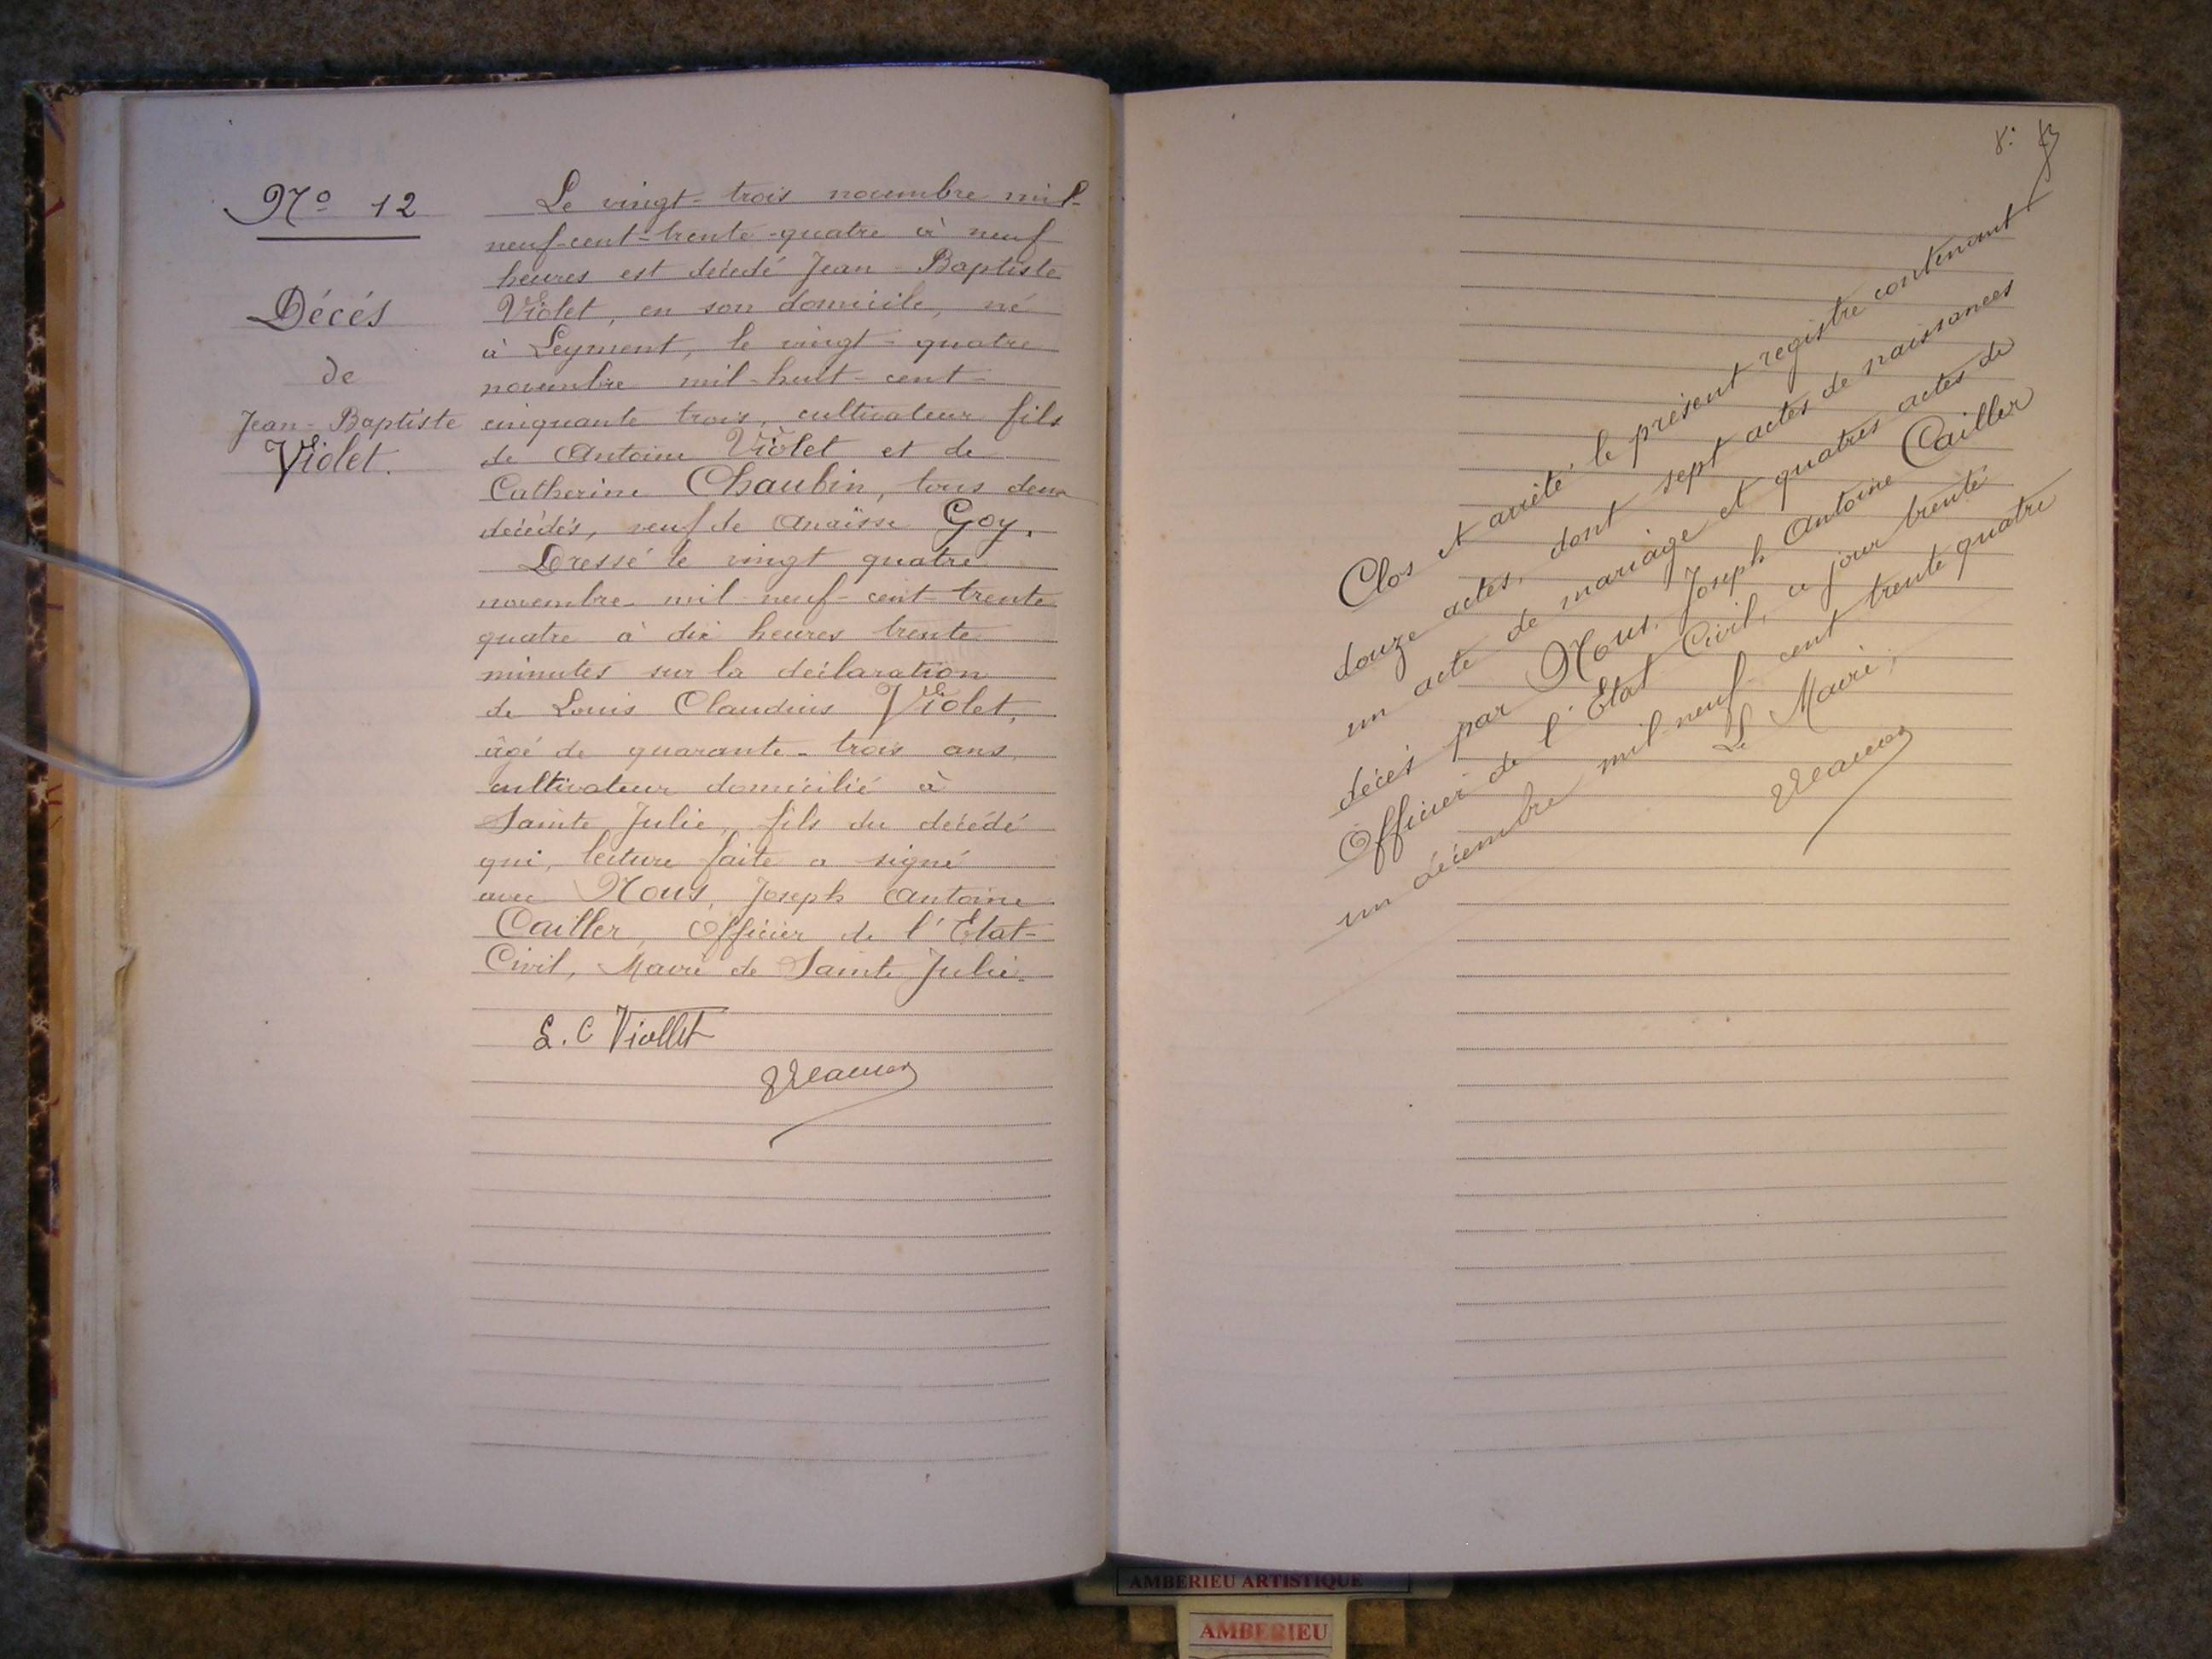 No 12
Décés
de
Jean-Baptiste
Violet.
Le vingt-trois novembre mil-
neuf-cent-trente-quatre à neuf
heures est décédé Jean-Baptiste
Violet, en son domicile, né
à Leyment, le vingt-quatre
novembre mil-huit-cent-
cinquante trois, cultivateur fils
de Antoine Violet et de
Catherine Chaubin, tous deux
décédés, veuf de Anaïsse Goy.
Dressé le vingt quatre
novembre mil neuf-cent-trente
quatre à dix heures trente
minutes sur la déclaration
de Louis Claudius Violet,
âgé de quarante-trois ans,
cultivateur domicilié à
Sainte Julie, fils du décédé
qui, lecture faite a signé
avec Nous, Joseph Antoine
Cailler, Officier de l'Etat-
Civil, Maire de Sainte Julie.
L. C Viollet
Clos et arrêté le présent registre contenant
douze actes, dont sept actes de naissances
un acte de mariage et quatres actes de
décès par Nous, Joseph Antoine Cailler
Officier de l'Etat Civil, a jour trente
un décembre mil neuf cent trente quatre
Le Maire,
AMBERIEU ARTISTIQUE
AMBERIEU